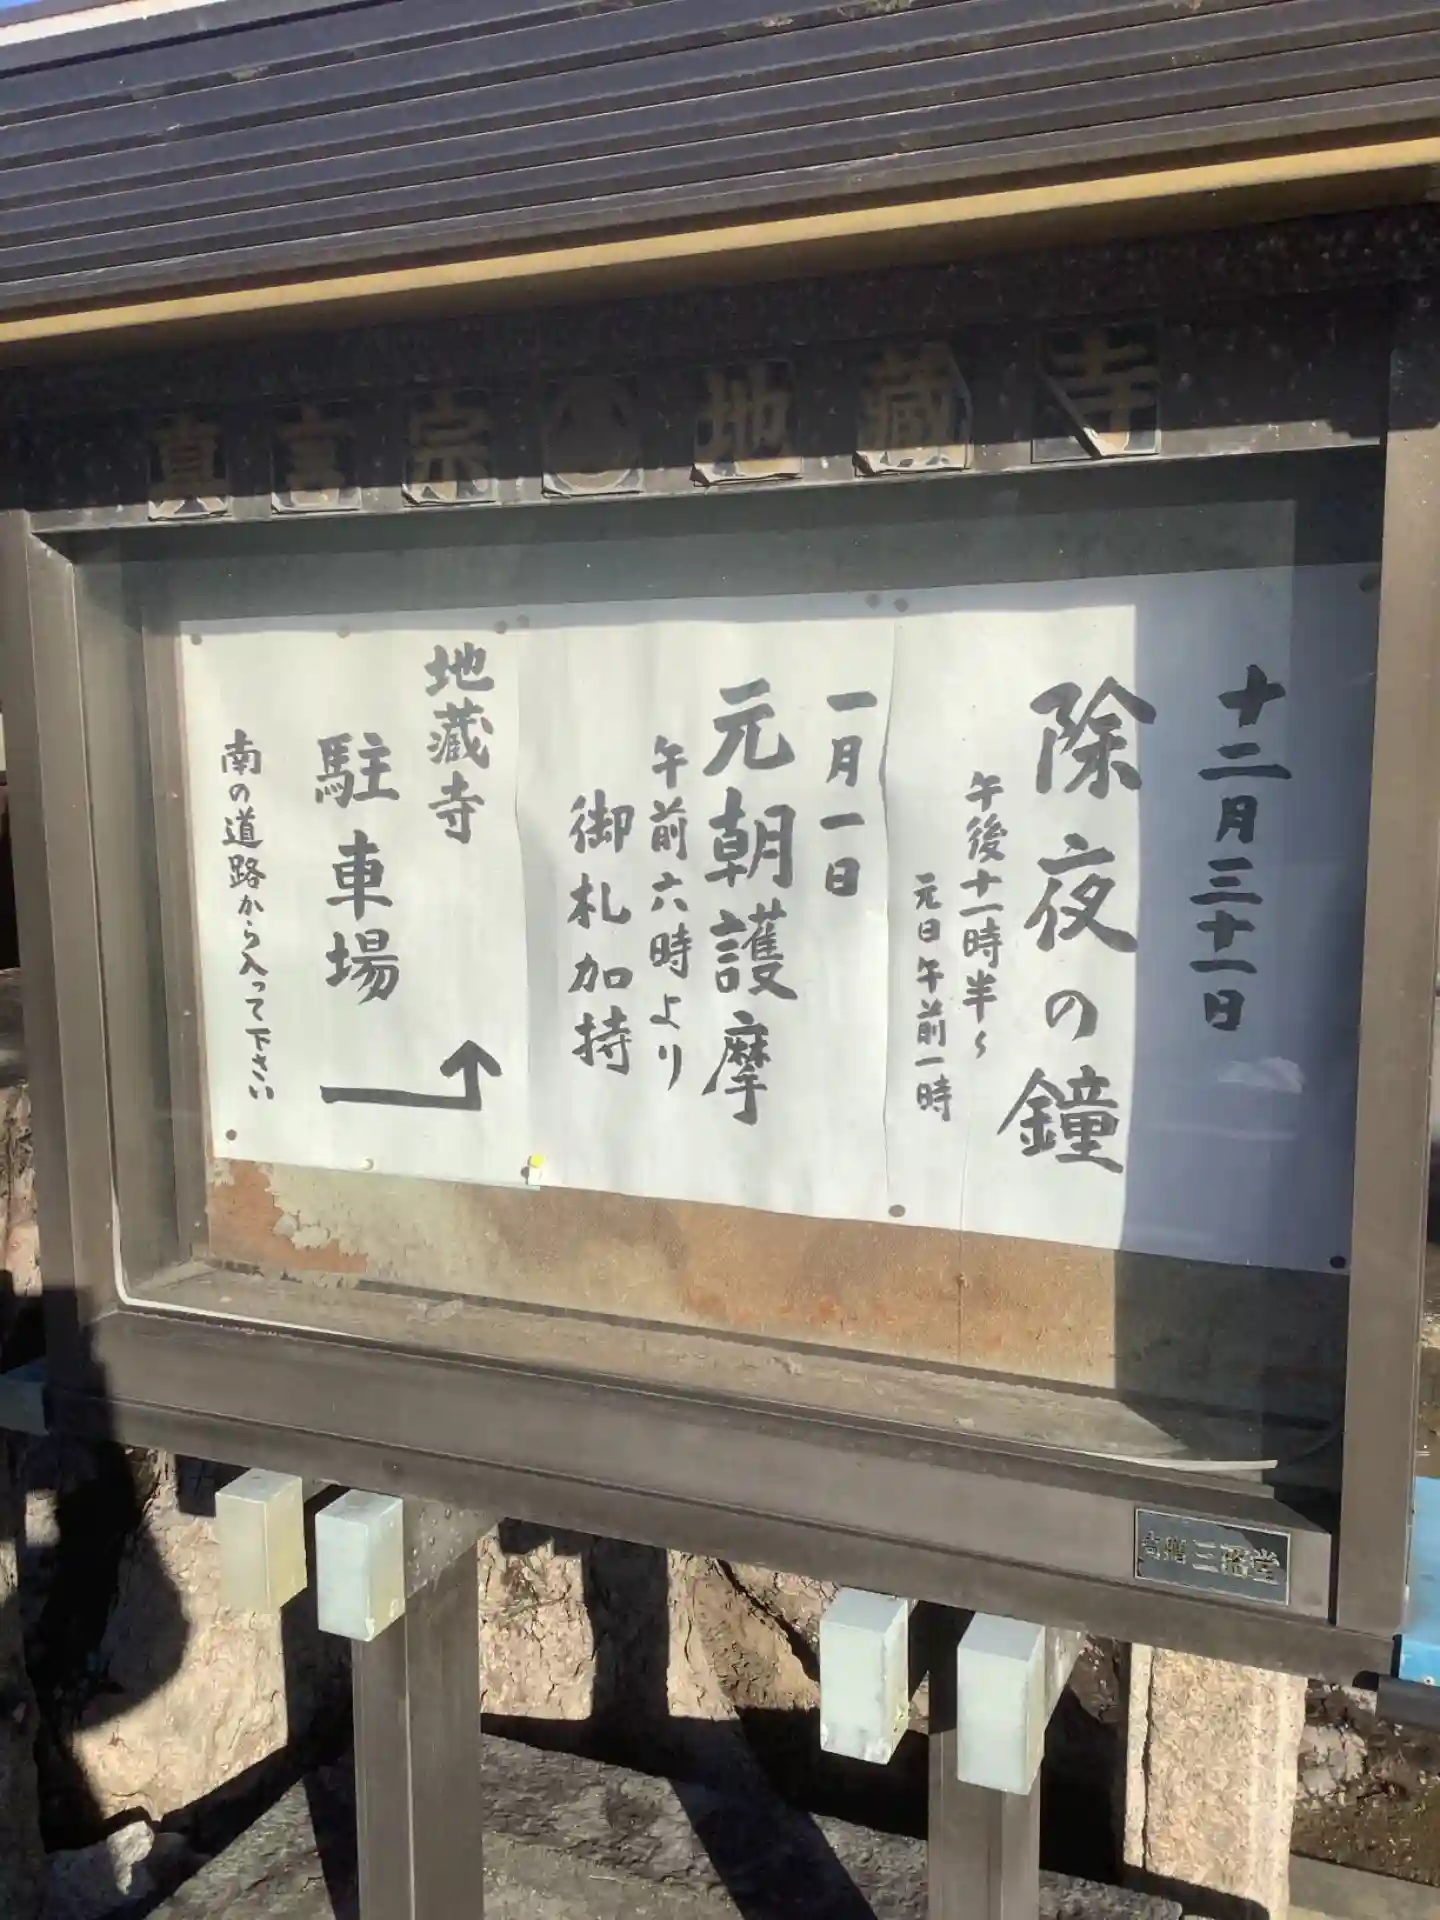 真言宗 地蔵寺
十二月三十一日
除夜の鐘
午後十一時半〜
元日午前一時
一月一日
元朝護摩
午前六時より
御札加持
地蔵寺
駐車場
南の道路から入って下さい
寄贈